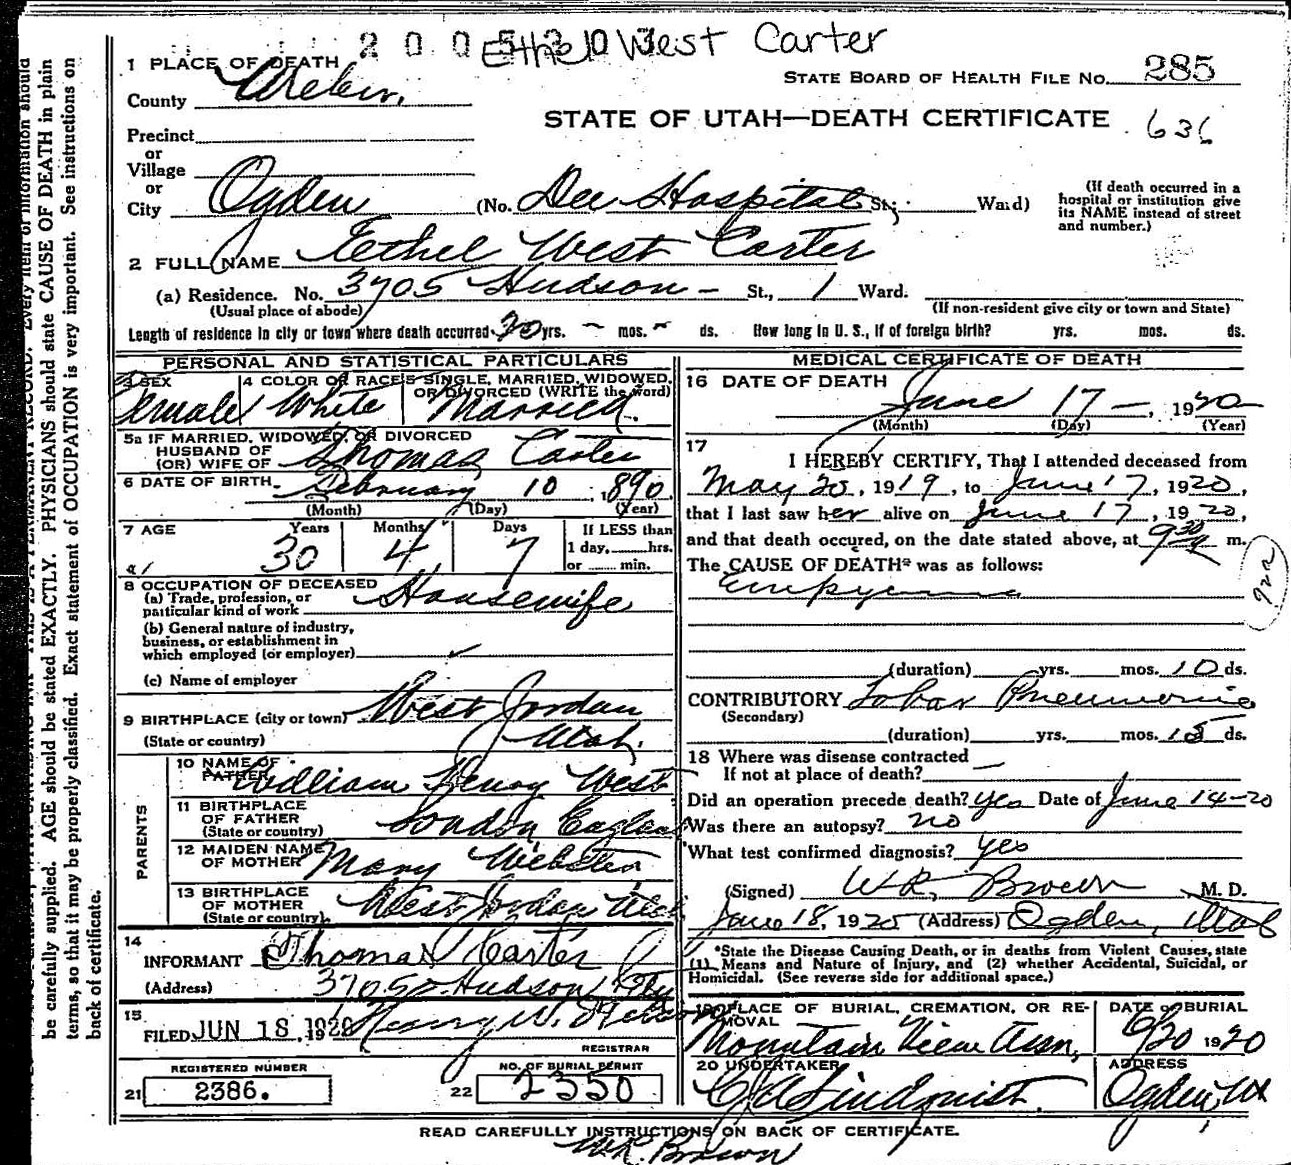 Ethel West Carter
1 PLACE OF DEATH
STATE BOARD OF HEALTH FILE No. 285
County Weber,
STATE OF UTAH—DEATH CERTIFICATE 636
Precinct
or
Village
or
City Ogden (No. Dee Hospital St; Ward)
(If death occurred in a hospital or institution give its NAME instead of street and number.)
2 FULL NAME Ethel West Carter
(a) Residence. No. 3705 Hudson - St., 1 Ward.
(Usual place of abode) (If non-resident give city or town and State)
Length of residence in city or town where death occurred 30 yrs. - mos. - ds. How long in U. S., if of foreign birth? yrs. mos. ds.
PERSONAL AND STATISTICAL PARTICULARS
3 SEX Female
4 COLOR OR RACE White
5 SINGLE, MARRIED, WIDOWED, OR DIVORCED (WRITE the word) Married
5a IF MARRIED, WIDOWED, OR DIVORCED
HUSBAND OF
(OR) WIFE OF Thomas Carter
6 DATE OF BIRTH February 10, 1890
(Month) (Day) (Year)
7 AGE Years Months Days If LESS than
30 4 7 1 day,......hrs.
or ...... min.
8 OCCUPATION OF DECEASED
(a) Trade, profession, or
particular kind of work Housewife
(b) General nature of industry,
business, or establishment in
which employed (or employer)
(c) Name of employer
9 BIRTHPLACE (city or town) West Jordan
(State or country) Utah.
PARENTS
10 NAME OF FATHER William Henry West
11 BIRTHPLACE OF FATHER (State or country) London England
12 MAIDEN NAME OF MOTHER Mary Webster
13 BIRTHPLACE OF MOTHER (State or country) West Jordan Utah
14
INFORMANT Thomas Carter
(Address) 3705 Hudson City
15
FILED JUN 18, 1920 Henry W.
REGISTRAR
REGISTERED NUMBER
21 2386.
NO. OF BURIAL PERMIT
22 2350
MEDICAL CERTIFICATE OF DEATH
16 DATE OF DEATH
June 17 -, 1920
(Month) (Day) (Year)
17
I HEREBY CERTIFY, That I attended deceased from
May 20, 1919, to June 17, 1920,
that I last saw her alive on June 17, 1920,
and that death occured, on the date stated above, at 9 30 m.
The CAUSE OF DEATH* was as follows:
Empyema
(duration) yrs. mos. 10 ds.
CONTRIBUTORY Lobar Pneumonia
(Secondary)
(duration) yrs. mos. 15 ds.
18 Where was disease contracted
If not at place of death? —
Did an operation precede death? yes Date of June 14-20
Was there an autopsy? no
What test confirmed diagnosis? yes
(Signed) W.R. Brown M. D.
June 18, 1920 (Address) Ogden, Utah
*State the Disease Causing Death, or in deaths from Violent Causes, state
(1) Means and Nature of Injury, and (2) whether Accidental, Suicidal, or
Homicidal. (See reverse side for additional space.)
19 PLACE OF BURIAL, CREMATION, OR REMOVAL
Mountain View Assn,
DATE OF BURIAL
6/20 1920
20 UNDERTAKER
Lindquist.
ADDRESS
Ogden, Ut
READ CAREFULLY INSTRUCTIONS ON BACK OF CERTIFICATE.
W.R. Brown
be carefully supplied. AGE should be stated EXACTLY. PHYSICIANS should state CAUSE OF DEATH in plain
terms, so that it may be properly classified. Exact statement of OCCUPATION is very important. See instructions on
back of certificate.